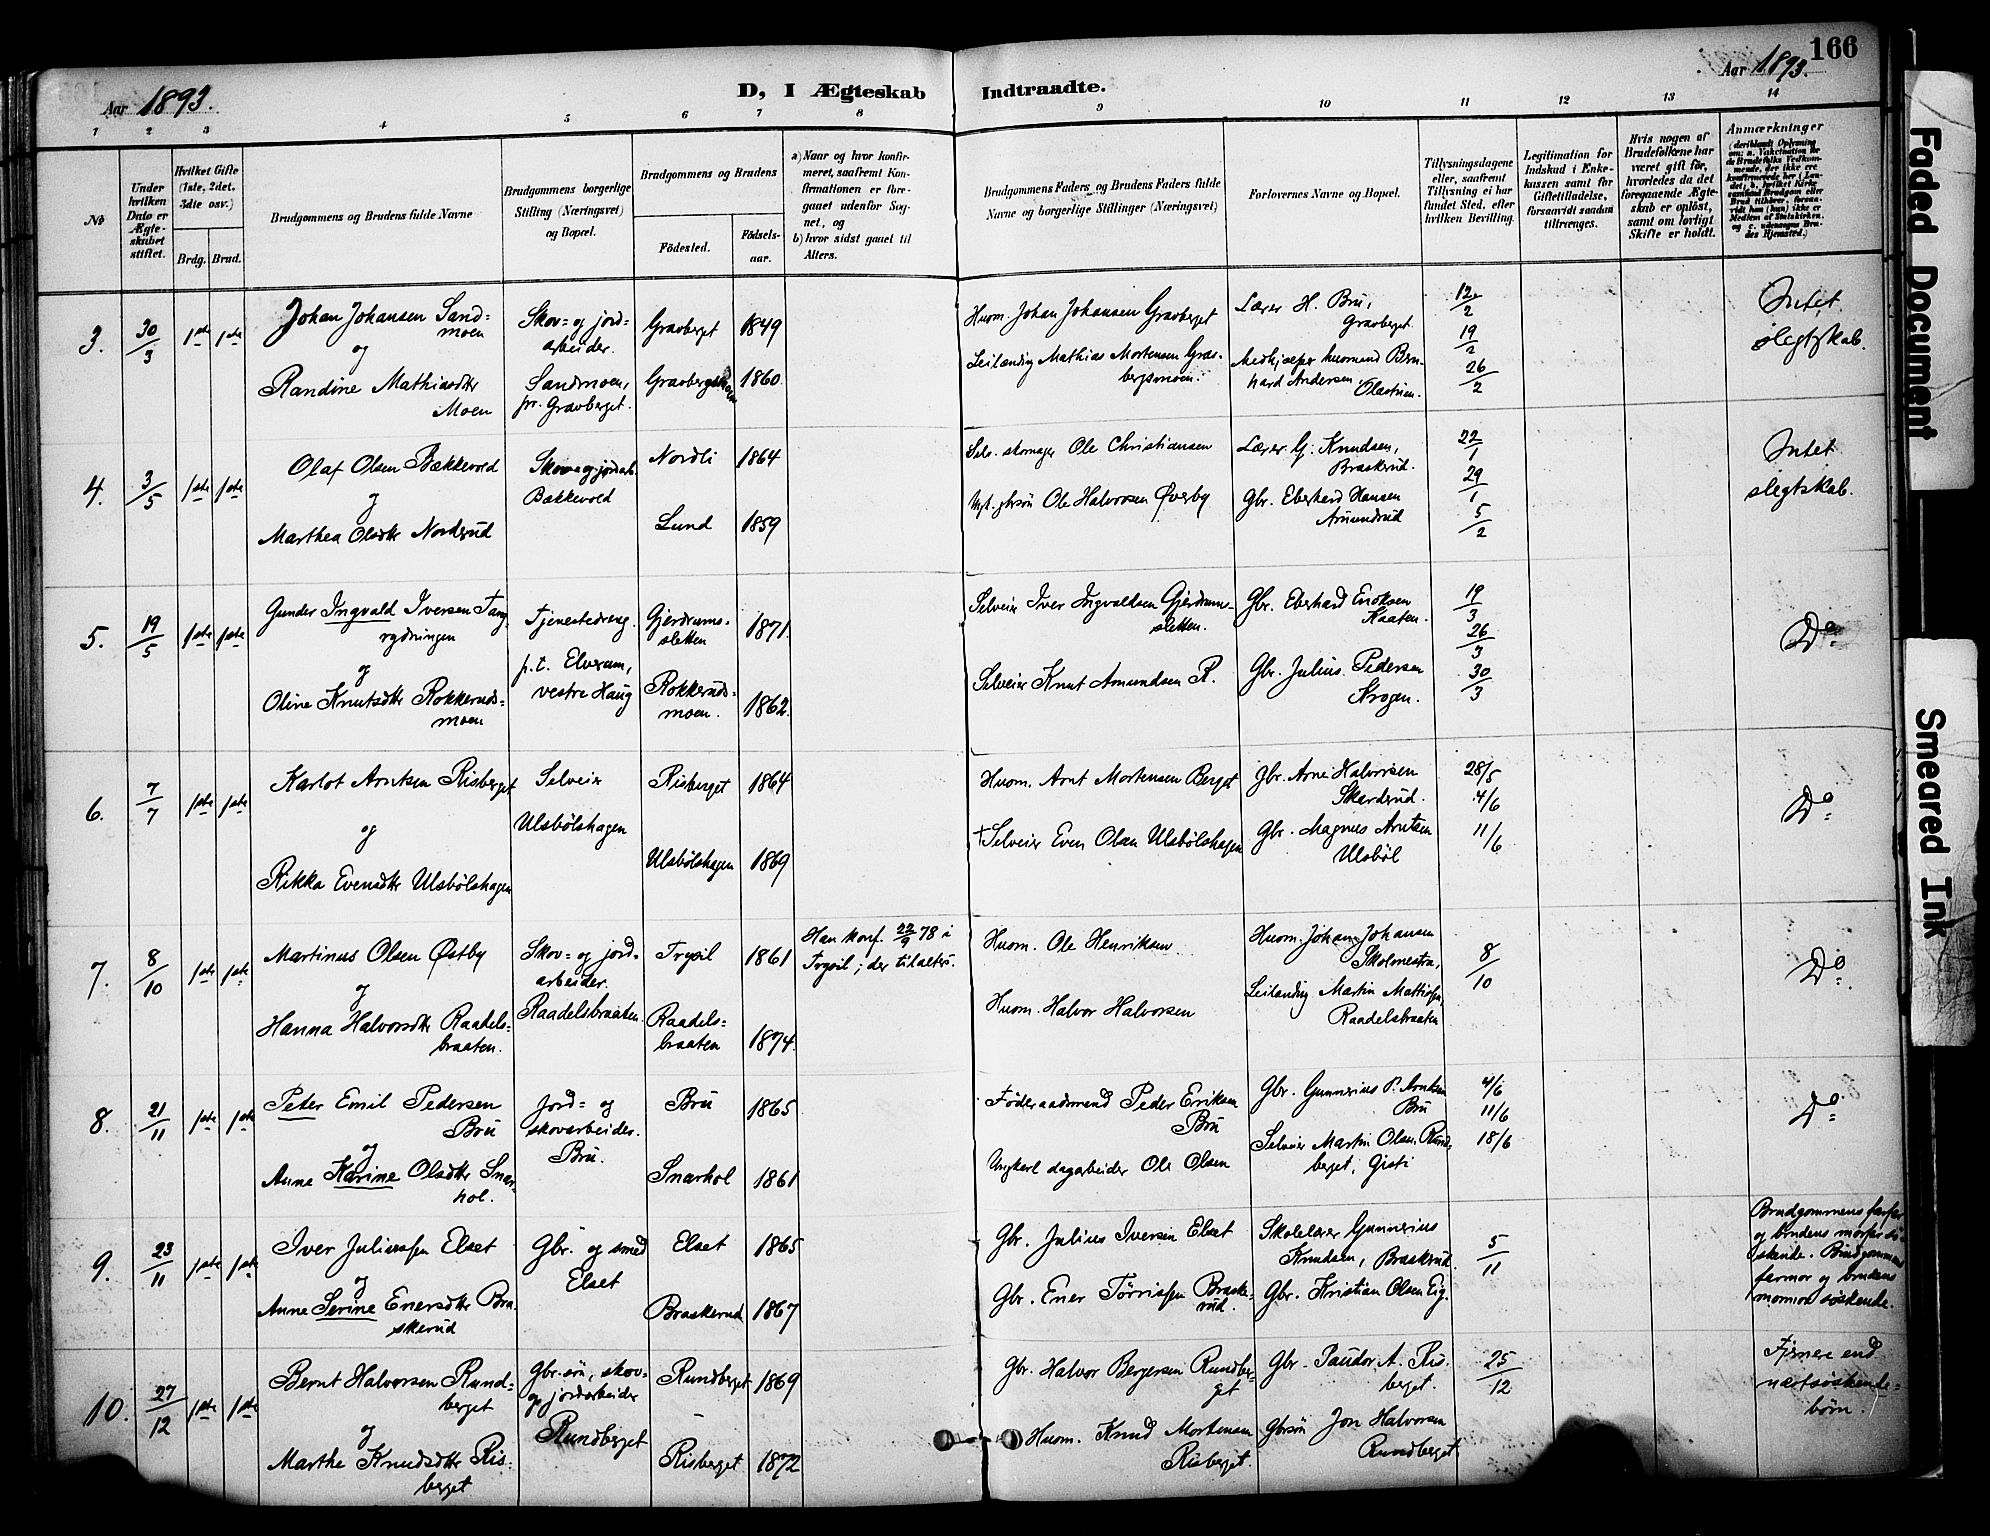 166
Aar 1893.
D, I Ægteskab Indtraadte.
Aar 1893.
1 2 3 4 5 6 7 8 9 10 11 12 13 14
No
Under hvilken Dato er Ægteskabet stiftet.
Hvilket Gifte (1ste, 2det, 3die osv.)
Brdg. Brud.
Brudgommens og Brudens fulde Navne
Brudgommens borgerlige Stilling (Næringsvei) og Bopæl.
Brudgommens og Brudens
Fødested.
Fødselsaar.
a) Naar og hvor konfirmeret, saafremt Konfirmationen er foregaaet udenfor Sognet, og
b) hvor sidst gaaet til Alters.
Brudgommens Faders og Brudens Faders fulde Navne og borgerlige Stillinger (Næringsvei)
Forlovernes Navne og Bopæl.
Tillysningsdagene eller, saafremt Tillysning ei har fundet Sted, efter hvilken Bevilling.
Legitimation for Indskud i Enkekassen samt for Giftetilladelse, forsaavidt saadan tiltrænges.
Hvis nogen af Brudefolkene har været gift før, hvorledes da det foregaaende Ægteskab er opløst, samt om lovligt Skifte er holdt.
Anmærkninger
(deriblandt Oplysning om: a. Vakcination for de Brudefolks Vedkommende, der ikke ere konfirmerede her i Landet, b. hvilket Kirkesamfund Brudgom eller Brud tilhører, forsaavidt han (hun) ikke er Medlem af Statskirken, og c. udensogns Brudes Hjemsted.)
3. 30/3 1ste 1ste
Johan Johansen Sand=
moen
og
Randine Mathiasdtr
Moen
Skov= og jord=
arbeider.
Sandmoen,
pr. Gravberget.
Gravberget 1849
Gravbergsmoen 1860.
Husm. Johan Johansen Gravberget
Leilænding Mathias Mortensen Grav-
bergsmoen.
Lærer H. Bru,
Gravberget.
Medhjælper husmand Bern-
hard Andersen,
12/2
19/2
26/2
Intet
slegtskab.
4. 3/5 1ste 1ste
Olaf Olsen Bækkevold
og
Marthea Olsdtr Norderud
Skov= og jordarb.
Bækkevold
Nordli 1864
Lund 1859
Selv. skomager Ole Christiansen
Ugt. gbrsøn Ole Halvorsen Øverby
Lærer G. Knudsen,
Braskerud.
Gbr. Eberhard Hansen
Amundrud
22/1
29/1
5/2
Intet
slegtskab.
5. 19/5 1ste 1ste
Gunder Ingvald Iversen Tang
rydningen
og
Oline Knutsdtr Rokkeruds=
moen
Tjenestedreng.
p.t. Elverum,
vestre Haug
Gjerdrums-
sletten 1871.
Rokkeruds=
moen. 1862.
Selveier Iver Ingvaldsen Gjerdrums-
sletten.
Selveier Knut Amundsen R.
Gbr. Eberhard Eriksen
Kaaten.
Gbr. Julius Pedersen
Krogen.
19/3
26/3
30/3
Do
6. 7/7 1ste 1ste
Karlot Arntsen Risberget
og
Rikka Evensdtr Ulsbølshagen
Selveier
Ulsbølshagen
Risberget 1864
Ulsbølshagen 1869
Husm. Arnt Mortensen Berget
†Selveier Even Olsen Ulsbølshagen
Gbr. Arne Halvorsen
Skarderud.
Gbr. Magnus Arntsen
Ulsbøl
28/5
4/6
11/6
Do
7. 8/10 1ste 1ste
Martinus Olsen Østby
og
Hanna Halvorsdtr Raadels=
braaten.
Skov= og jord=
arbeider.
Raadelsbraaten.
Trysil 1861
Raadels=
braaten 1874.
Han konf. 22/9 78 i
Trysil; der tilalters.
Husm. Ole Henriksen
Husm. Halvor Halvorsen
Husm. Johan Johansen
Skolmestra,
Leilænding Martin Mattisen,
Raadelsbraaten
8/10
Do.
8. 21/11 1ste 1ste
Peter Emil Pedersen
Bru
og
Anne Karine Olsdtr Snar-
hol.
Jord= og
skovarbeider.
Bru.
Bru 1865
Snarhol 1861
Føderaadsmand Peder Eriksen
Bru
Ungkarl dagarbeider Ole Olsen
Gbr. Gunnerius P. Arntsen
Bru
Selveier Martin Olsen Rund-
berget, Gisti
4/6
11/6
18/6
Do
9. 23/11 1ste 1ste
Iver Juliussen Elset
og
Anne Serine Enersdtr Bra-
skerud
Gbr. og smed
Elset
Elset 1865
Braskerud 1867
Gbr. Julius Iversen Elset
Gbr. Ener Tørrissen Braske-
rud.
Skolelærer Gunnerius
Knudsen, Braskerud.
Gbr. Kristian Olsen Eig.
5/11
Brudgommens farfar
og brudens morfar sø-
skende. Brudgommens
farmor og brudens
mormor søskende.
10. 27/12 1ste 1ste
Bernt Halvorsen Rund-
berget
og
Marthe Knudsdtr Ris-
berget
Gbr.søn, skov-
og jordarbeider
Rundberget
Rundberget 1869
Risberget 1872
Gbr. Halvor Bergersen Rundber-
get
Husm. Knud Mortensen
Risberget.
Gbr. Paudor A. Ris-
berget.
Gbrsøn Jon Halvorsen
Rundberget.
25/12
Fjernere end
næstsøskende-
børn.
Faded Document
Smeared Ink